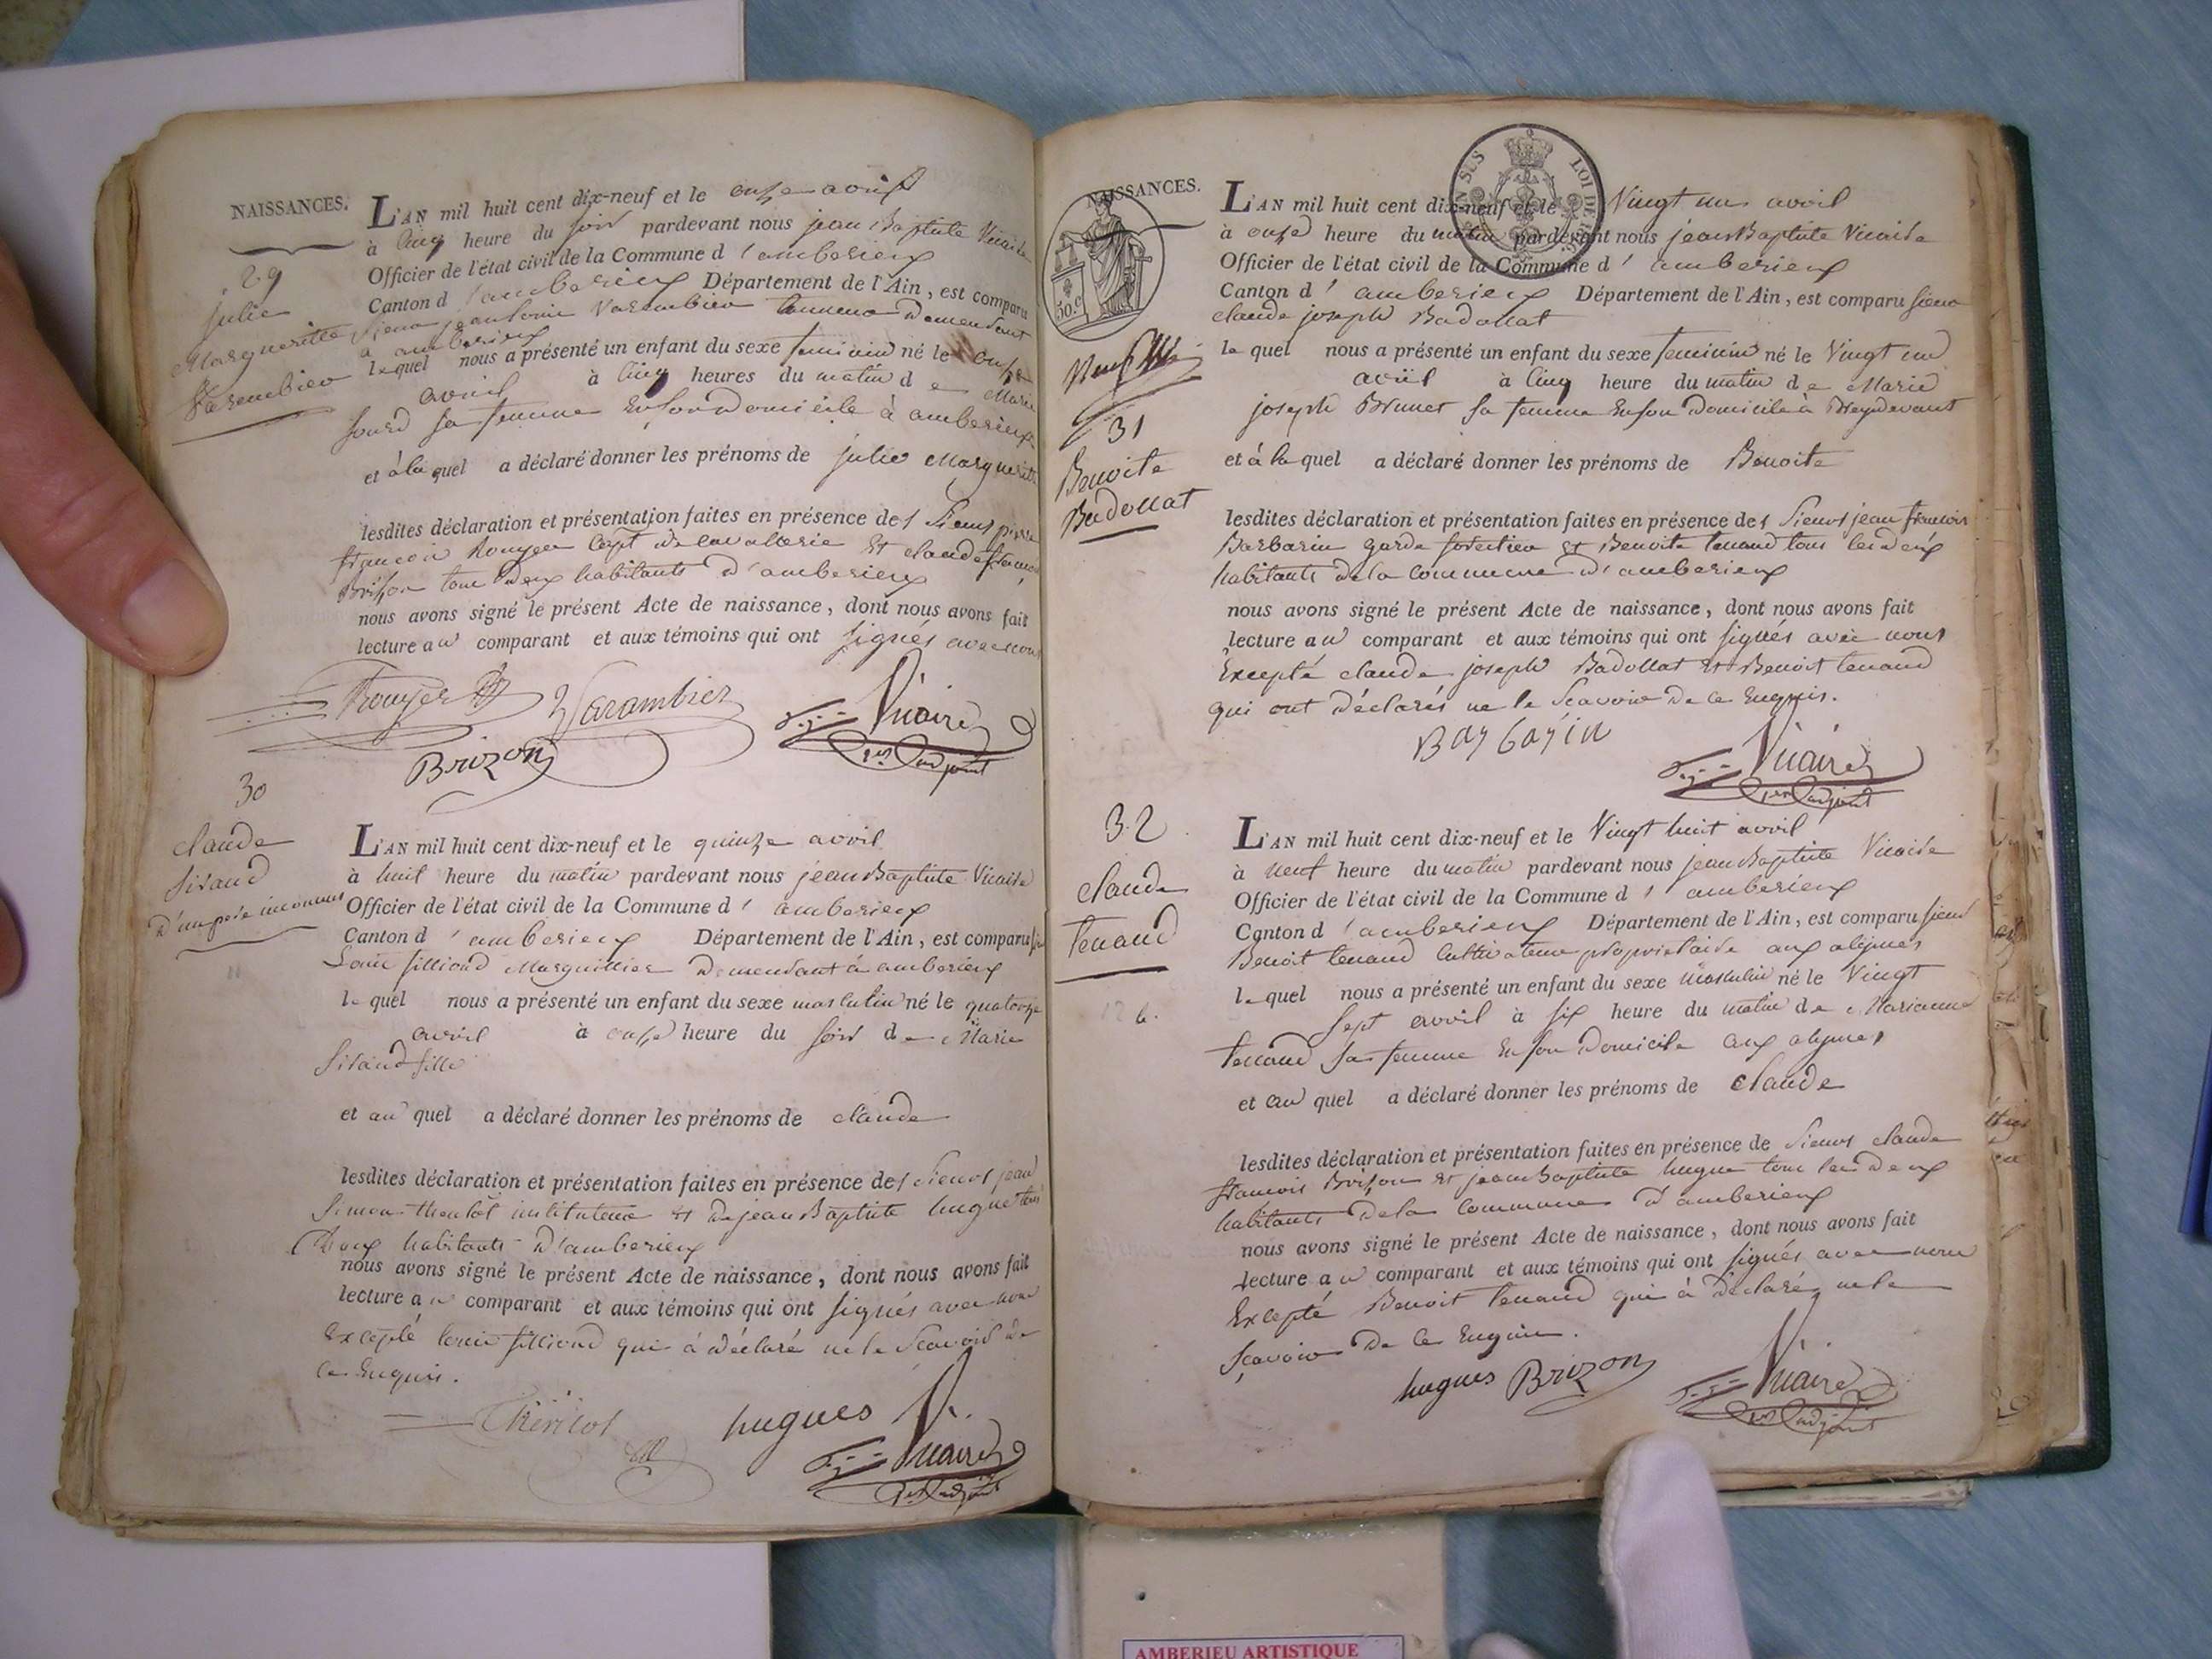 NAISSANCES.
29
julie
Margueritte
Varembier
L'AN mil huit cent dix-neuf et le onze avril
à cinq heure du soir pardevant nous jean Baptiste Vicaire
Officier de l'état civil de la Commune d' amberieux
Canton d' amberieux Département de l'Ain, est comparu
Sieur jeantoine Varembier tanneur Demeudant
à amberieux
lequel nous a présenté un enfant du sexe feminin né le onze
avril à cinq heures du matin de Marie
sourd sa femme En son Domicile à amberieux
et à la quel a déclaré donner les prénoms de julie Marguerite
lesdites déclaration et présentation faites en présence des Sieurs pierre
françois Rouyer Capt de Cavalerie Et claude francois
Brison tous deux habitants d'amberieux
nous avons signé le présent Acte de naissance, dont nous avons fait
lecture au comparant et aux témoins qui ont signés avec nous
Rouyer Varambier Vicaire
Brizon 1er adjoint
30
claude
siraud
d'un père inconnus
L'AN mil huit cent dix-neuf et le quinze avril
à huit heure du matin pardevant nous jean Baptiste Vicaire
Officier de l'état civil de la Commune d' amberieux
Canton d' amberieux Département de l'Ain, est comparu
Louis filliond Marguillier Demeudant à amberieux
le quel nous a présenté un enfant du sexe masculin né le quatorze
avril à onze heure du soir de Marie
siraud fille
et au quel a déclaré donner les prénoms de claude
lesdites déclaration et présentation faites en présence des Sieurs jean
Simon instituteur et de jean Baptiste hugue tous
Deux habitants d'amberieux
nous avons signé le présent Acte de naissance, dont nous avons fait
lecture au comparant et aux témoins qui ont signés avec nous
Excepté louis filliond qui à déclaré ne le Scavoir de
ce Enquis.
hugues Vicaire
1er adjoint
NAISSANCES.
50.c
31
Benoite
Badollat
L'AN mil huit cent dix-neuf et le Vingt un avril
à onze heure du matin pardevant nous jean Baptiste Vicaire
Officier de l'état civil de la Commune d' amberieux
Canton d' amberieux Département de l'Ain, est comparu sieur
claude joseph Badollat
le quel nous a présenté un enfant du sexe feminin né le Vingt un
avril à cinq heure du matin de Marie
joseph Brunet sa femme En son Domicile à Breydevant
et à la quel a déclaré donner les prénoms de Benoite
lesdites déclaration et présentation faites en présence des Sieurs jean francois
Barbarin garde forestier et Benoite tenand tous les deux
habitants de la commune d'amberieux
nous avons signé le présent Acte de naissance, dont nous avons fait
lecture au comparant et aux témoins qui ont signés avec nous
Excepté claude joseph Badollat et Benoit tenand
qui ont déclarés ne le Scavoir De ce Enquis.
Barbarin
Vicaire
1er adjoint
32
claude
tenand
L'AN mil huit cent dix-neuf et le Vingt huit avril
à neuf heure du matin pardevant nous jean Baptiste Vicaire
Officier de l'état civil de la Commune d' amberieux
Canton d' amberieux Département de l'Ain, est comparu sieur
Benoit tenand Cultivateur proprietaire aux alymes
le quel nous a présenté un enfant du sexe masculin né le Vingt
Sept avril à six heure du matin de Marianne
tenand sa femme En son Domicile aux alymes
et au quel a déclaré donner les prénoms de claude
lesdites déclaration et présentation faites en présence de Sieurs claude
francois Brison et jean Baptiste hugue tous les deux
habitants De la commune d'amberieux
nous avons signé le présent Acte de naissance, dont nous avons fait
lecture au comparant et aux témoins qui ont signés avec nous
Excepté Benoit tenand qui à déclaré ne le
Scavoir De ce Enquis.
hugues Brizon Vicaire
1er adjoint
AMBERIEU ARTISTIQUE